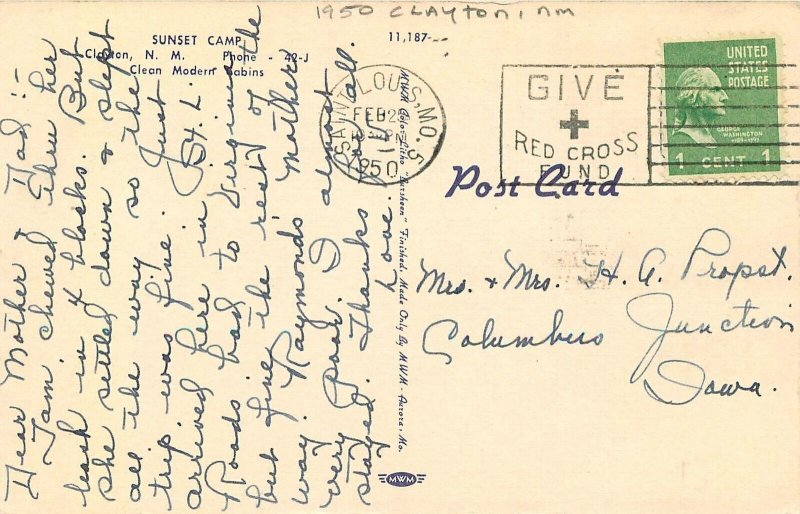 1950 CLAYTON, NM
SUNSET CAMP
Clayton, N. M. Phone - 42-J
Clean Modern Cabins
11,187
SAINT LOUIS, MO. 5
FEB 2
1950
GIVE
RED CROSS
FUND
UNITED
STATES
POSTAGE
GEORGE
WASHINGTON
1789-1797
1 CENT 1
Post Card
Mrs. & Mrs. H. A. Propst.
Columbus Junction
Iowa.
Dear Mother & Dad :-
Tam chewed thru her
leash in 4 blocks. But
she settled down & slept
all the way so the
trip was fine. Just
arrived here in St. L.
Roads bad to Virginia
but fine the rest of the
way. Raymonds Mother
very poor. I almost
stayed. Thanks for all.
Love.
MWM Color-Litho "Finished. Made Only By MWM, Aurora, Mo.
MWM